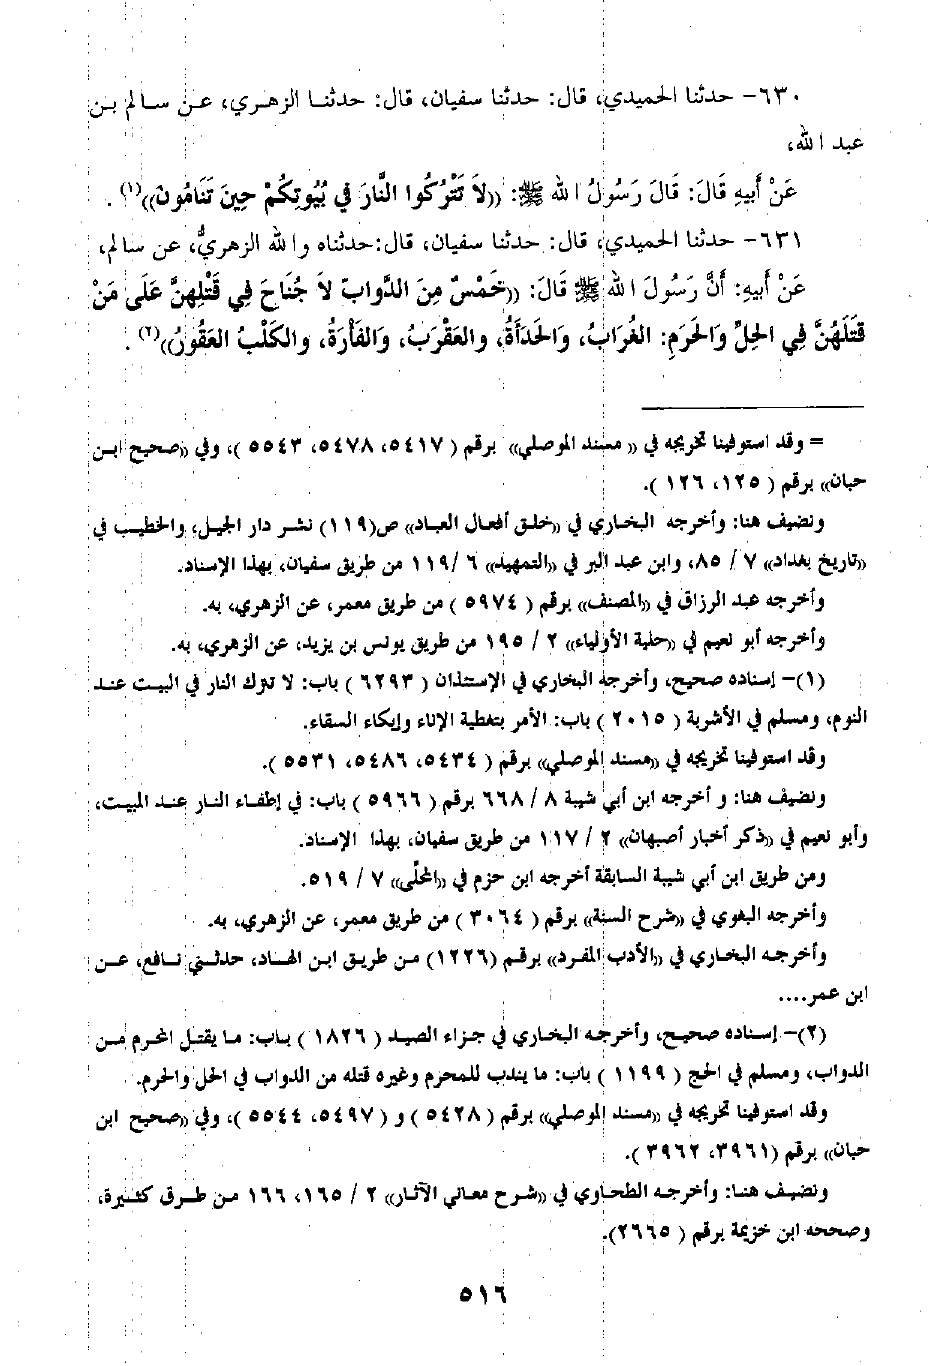 ٦٣٠- حدثنا الحميدي، قال: حدثنا سفيان، قال: حدثنا الزهري، عن سالم بن
عبد الله،
عَنْ أَبِيهِ قَالَ: قَالَ رَسُولُ الله ﷺ: ((لاَ تَتْرُكُوا النَّارَ فِي بُيُوتِكُمْ حِينَ تَنَامُونَ))(١) .
٦٣١- حدثنا الحميدي، قال: حدثنا سفيان، قال:حدثناه والله الزهريُّ، عن سالم،
عَنْ أَبِيهِ: أَنَّ رَسُولَ الله ﷺ قَالَ: ((خَمْسٌ مِنَ الدَّوابّ لاَ جُنَاحَ فِي قَتْلِهِنَّ عَلَى مَنْ
قَتَلَهُنَّ فِي الحِلِّ وَالحَرَمِ: الغُرَابُ، وَالحَدَأَةُ، والعَقْرَبُ، وَالفَأرَةُ، والكَلْبُ العَقُورُ))(٢) .
= وقد استوفينا تخريجه في (( مسند الموصلي)) برقم ( ٥٤١٧، ٥٤٧٨، ٥٥٤٣ )، وفي ((صحيح ابن
حبان)) برقم ( ١٢٥، ١٢٦ ).
ونضيف هنا: وأخرجه البخاري في ((خلق أفعال العباد)) ص(١١٩) نشر دار الجيل، والخطيب في
((تاريخ بغداد)) ٧ / ٨٥، وابن عبد البر في ((التمهيد)) ٦ /١١٩ من طريق سفيان، بهذا الإسناد.
وأخرجه عبد الرزاق في ((المصنف)) برقم ( ٥٩٧٤ ) من طريق معمر، عن الزهري، به.
وأخرجه أبو نعيم في ((حلية الأولياء)) ٢ / ١٩٥ من طريق يونس بن يزيد، عن الزهري، به.
(١)- إسناده صحيح، وأخرجه البخاري في الإستئذان ( ٦٢٩٣ ) باب: لا تترك النار في البيت عند
النوم، ومسلم في الأشربة ( ٢٠١٥ ) باب: الأمر بتغطية الإناء وإيكاء السقاء.
وقد استوفينا تخريجه في ((مسند الموصلي)) برقم ( ٥٤٣٤، ٥٤٨٦، ٥٥٣١ ).
ونضيف هنا: و أخرجه ابن أبي شيبة ٨ / ٦٦٨ برقم ( ٥٩٦٦ ) باب: في إطفاء النار عند المبيت،
وأبو نعيم في ((ذكر أخبار أصبهان)) ٢ / ١١٧ من طريق سفيان، بهذا الإسناد.
ومن طريق ابن أبي شيبة السابقة أخرجه ابن حزم في ((المحلَّى)) ٧ / ٥١٩.
وأخرجه البغوي في ((شرح السنة)) برقم ( ٣٠٦٤ ) من طريق معمر، عن الزهري، به.
وأخرجه البخاري في ((الأدب المفرد)) برقم (١٢٢٦) من طريق ابن الهاد، حدثني نافع، عن
ابن عمر....
(٢)- إسناده صحيح، وأخرجه البخاري في جزاء الصيد ( ١٨٢٦ ) باب: ما يقتل المحرم من
الدواب، ومسلم في الحج ( ١١٩٩ ) باب: ما يندب للمحرم وغيره قتله من الدواب في الحل والحرم.
وقد استوفينا تخريجه في ((مسند الموصلي)) برقم ( ٥٤٢٨ ) و ( ٥٤٩٧، ٥٥٤٤ )، وفي ((صحيح ابن
حبان)) برقم (٣٩٦١، ٣٩٦٢ ).
ونضيف هنا: وأخرجه الطحاوي في ((شرح معاني الآثار)) ٢ / ١٦٥، ١٦٦ من طرق كثيرة،
وصححه ابن خزيمة برقم ( ٢٦٦٥).
٥١٦